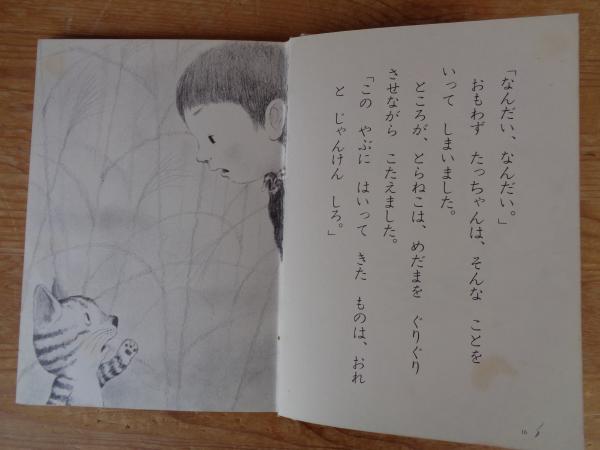 「なんだい、なんだい。」
おもわず たっちゃんは、そんな ことを
いって しまいました。
ところが、とらねこは、めだまを ぐりぐり
させながら こたえました。
「この やぶに はいって きた ものは、おれ
と じゃんけん しろ。」
16